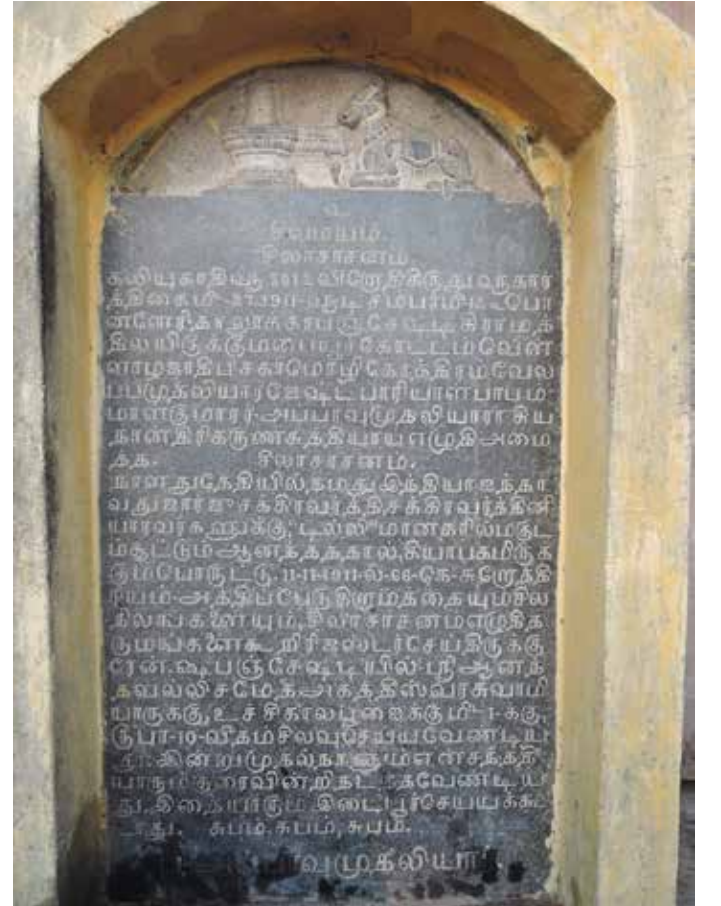 உ
சிவமயம்.
சிலாசாசனம்.
கலியுகாதிவரு 5012 விரோதிகிருதுவரு கார்
த்திகைமீ 27-1911-வருடிசம்பர்மீ 12 பொ
ன்னேரி தாலூக்காபஞ்சேஷ்டி கிராமத்
திலயிருக்கும்பையூர்கோட்டம்வெள்
ளாழஜாதிபுசகாமொழிகோத்திரம்வேல
ப்பமுதலியார்ஜேஷ்ட பாரியாள்பாப்பம்
மாள்குமாரர்-அப்பாவுமுதலியாராகிய
நான், திரிகருணசுத்தியாய்எழுதிஅமை
த்த சிலாசாசனம்.
நாளதுதேதியில், நமதுஇந்தியாஐந்தா
வதுஜார்ஜுசக்கிரவர்த்தி சக்கிரவர்த்தினி
யாரவர்களுக்கு, டில்லிமாநகரில்மகுட
ம்சூட்டும்ஆனந்தத்தகால்,கியாபகமிருக்
கும்பொருட்டு, 11-11-1911-ல்-66-கெ-சுரோத்தி
ரியம்-அத்திப்பேடுகிராமத்தையும்சில
நிலங்களையும், சிலாசாசனம்எழுதித
ருமங்களைகூறிரிஜஸ்டர்செய்திருக்கு
றேன். ஷை பஞ்சேஷ்டியில் ஸ்ரீ ஆனந்
தவல்லிசமேத அகத்தீஸ்வரசுவாமி
யாருக்கு, உச்சிகாலபூஜைக்குமீ 1-க்கு,
ரூபா-10-வீதம்சிலவுசெய்யவேண்டிய
து. இன்றுமுதல்நானும்என்சந்ததி
யாரும்குறைவின்றிநடத்தவேண்டிய
து. இதையாரும் இடையூர்செய்யக்கூ
டாது. சுபம். சுபம், சுபம்.
அப்பாவுமுதலியார்.